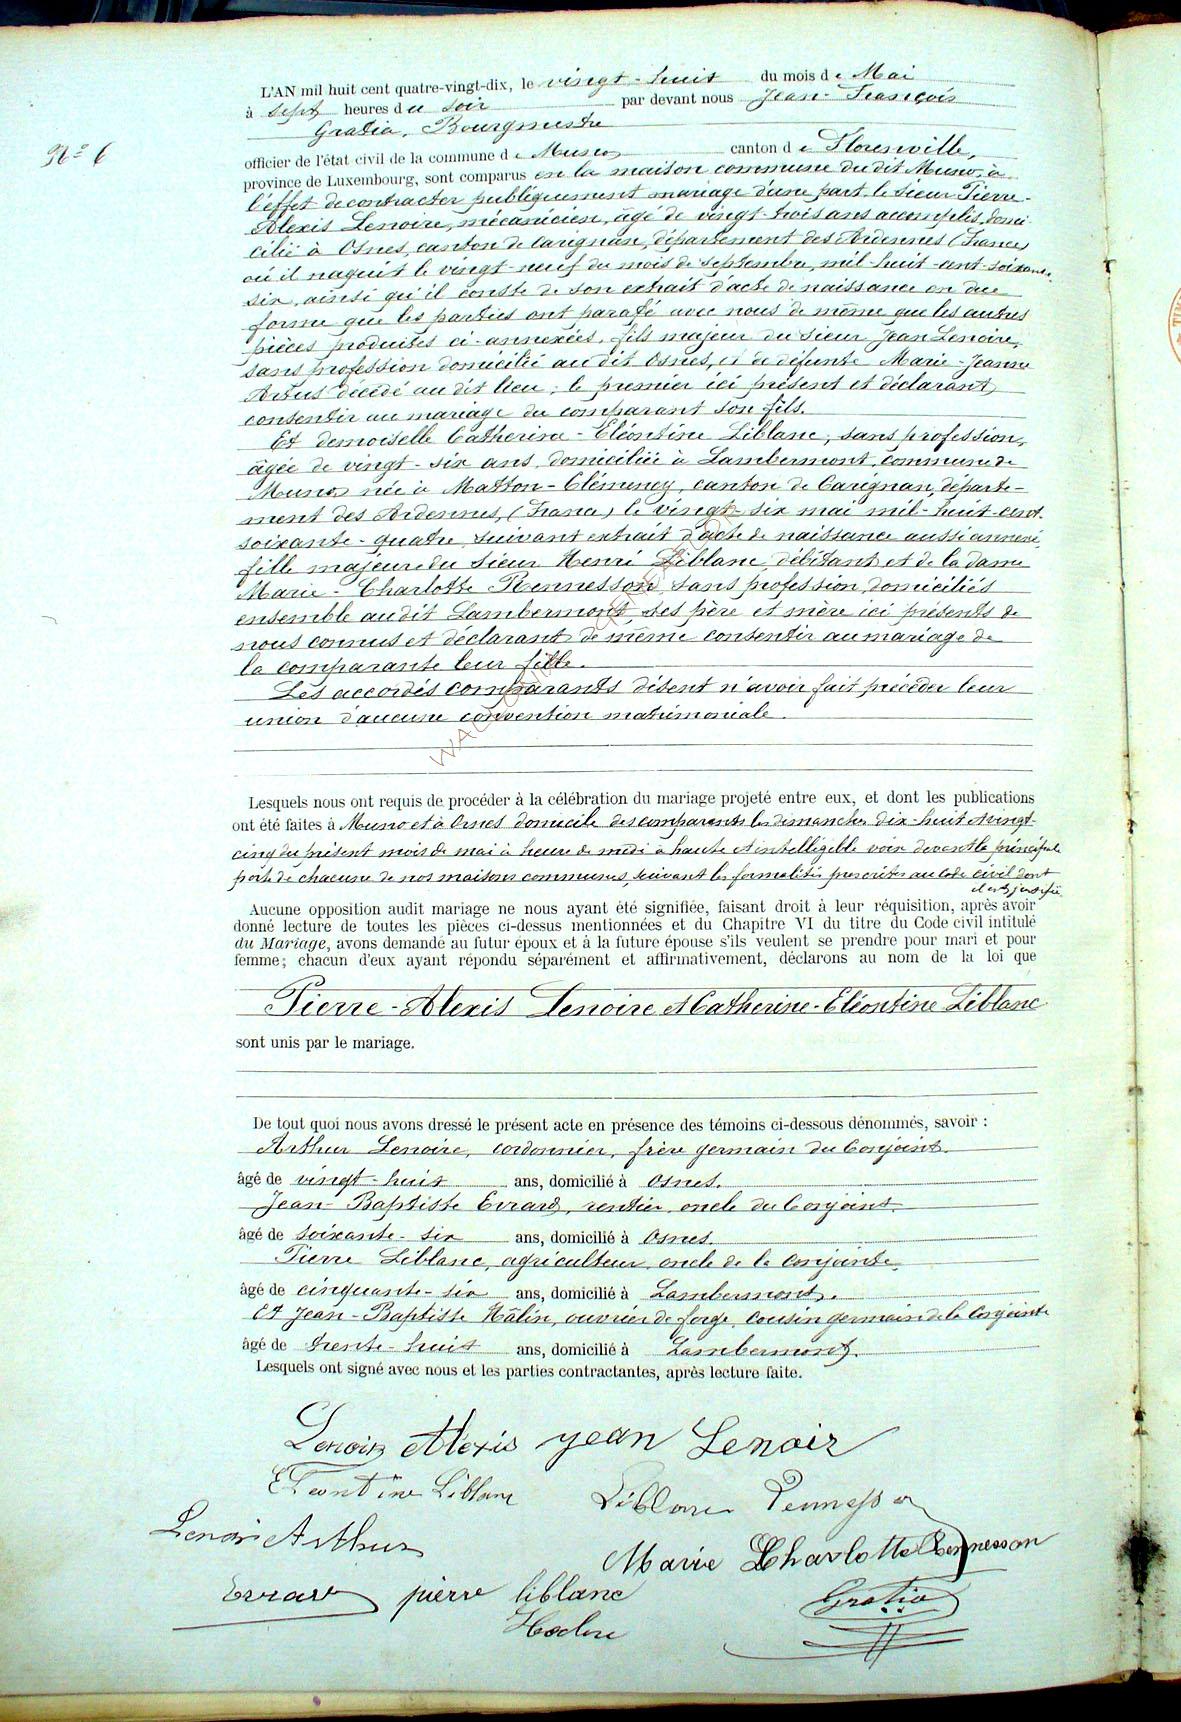 L'AN mil huit cent quatre-vingt-dix, le vingt-huit du mois de Mai
à sept heures du soir par devant nous Jean-François
Gratia, Bourgmestre
N° 6
officier de l'état civil de la commune de Muno canton de Florenville,
province de Luxembourg, sont comparus en la maison commune du dit Muno, à
l'effet de contracter publiquement mariage d'une part le sieur Pierre-
Alexis Lenoire, mécanicien, âgé de vingt-trois ans accomplis, domi-
cilié à Osnes, canton de Carignan, département des Ardennes (France)
où il naquit le vingt-neuf du mois de septembre, mil-huit-cent-soixante-
six, ainsi qu'il conste de son extrait d'acte de naissance en due
forme que les parties ont parafé avec nous de même que les autres
pièces produites ci-annexées, fils majeur du sieur Jean Lenoire,
sans profession domicilié au dit Osnes, et de défunte Marie-Jeanne
décédé au dit lieu; le premier ici présent et déclarant
consentir au mariage du comparant son fils.
Et demoiselle Catherine-Eléontine Liblanc, sans profession,
âgée de vingt-six ans, domiciliée à Lambermont, commune de
Muno née à Matton-Clémency, canton de Carignan, départe-
ment des Ardennes, (France) le vingt-six mai mil-huit-cent-
soixante-quatre, suivant extrait d'acte de naissance aussi annexé,
fille majeure du sieur Henri Liblanc, débitant et de la dame
Marie-Charlotte Rennesson, sans profession, domiciliés
ensemble au dit Lambermont, ses père et mère ici présents de
nous connus et déclarant de même consentir au mariage de
la comparante leur fille.
Les accordés comparants disent n'avoir fait précéder leur
union d'aucune convention matrimoniale.
Lesquels nous ont requis de procéder à la célébration du mariage projeté entre eux, et dont les publications
ont été faites à Muno et à Osnes domicile des comparants les dimanches dix-huit et vingt-
cinq du présent mois de mai à heure de midi à haute et intelligible voix devant la principale
porte de chacune de nos maisons communes, suivant les formalités prescrites au Code civil dont
il est justifié
Aucune opposition audit mariage ne nous ayant été signifiée, faisant droit à leur réquisition, après avoir
donné lecture de toutes les pièces ci-dessus mentionnées et du Chapitre VI du titre du Code civil intitulé
du Mariage, avons demandé au futur époux et à la future épouse s'ils veulent se prendre pour mari et pour
femme; chacun d'eux ayant répondu séparément et affirmativement, déclarons au nom de la loi que
Pierre-Alexis Lenoire et Catherine-Eléontine Liblanc
sont unis par le mariage.
De tout quoi nous avons dressé le présent acte en présence des témoins ci-dessous dénommés, savoir :
Arthur Lenoire, cordonnier, frère germain du Conjoint.
âgé de vingt-huit ans, domicilié à Osnes.
Jean-Baptiste Evrard, rentier, oncle du Conjoint.
âgé de soixante-six ans, domicilié à Osnes.
Pierre Liblanc, agriculteur, oncle de la Conjointe.
âgé de cinquante-six ans, domicilié à Lambermont.
Et Jean-Baptiste Hâlin, ouvrier de forge, cousin germain de la Conjointe
âgé de trente-huit ans, domicilié à Lambermont.
Lesquels ont signé avec nous et les parties contractantes, après lecture faite.
Lenoir Alexis Jean Lenoir
Eleontine Liblanc
Lenoir Arthur
Marie Charlotte Rennesson
Evrard pierre liblanc Gratia